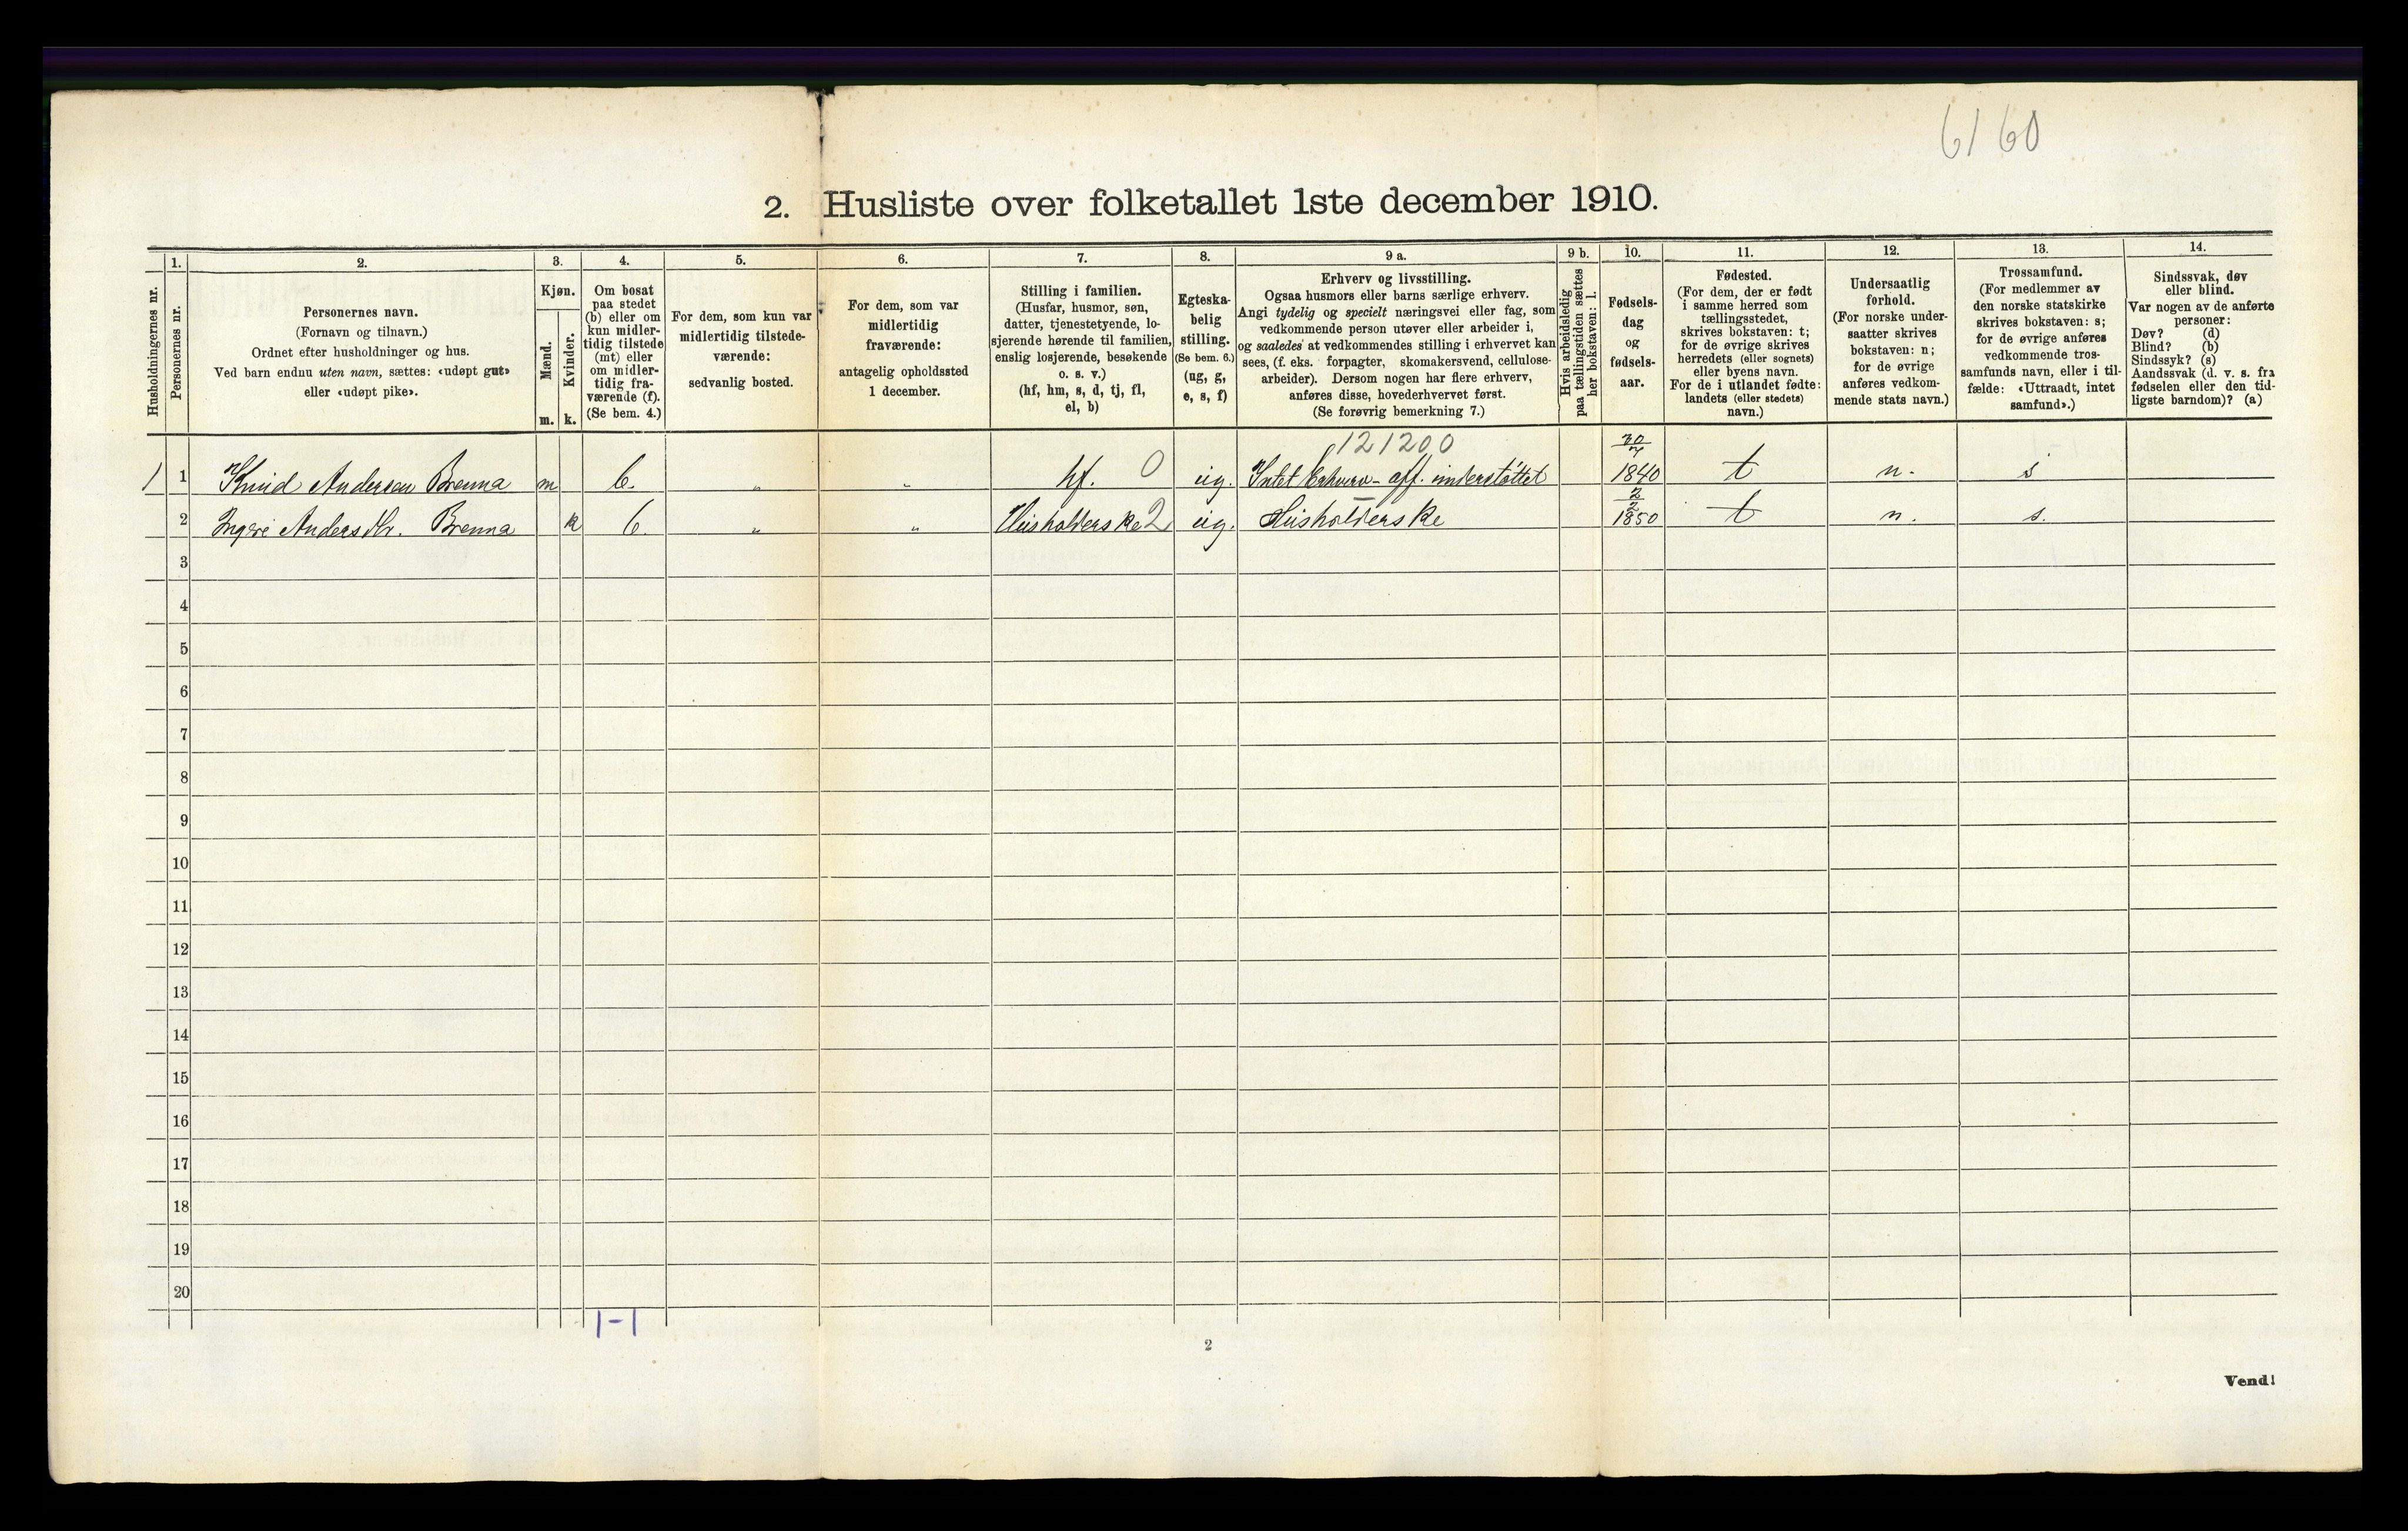 6160
2. Husliste over folketallet 1ste december 1910.
Husholdningernes nr.
1.
Personernes nr.
2.
Personernes navn.
(Fornavn og tilnavn.)
Ordnet efter husholdninger og hus.
Ved barn endnu uten navn, sættes: «udøpt gut»
eller «udøpt pike».
3.
Kjøn.
Mænd.
Kvinder.
m. k.
4.
Om bosat
paa stedet
(b) eller om
kun midler-
tidig tilstede
(mt) eller
om midler-
tidig fra-
værende (f).
(Se bem. 4.)
5.
For dem, som kun var
midlertidig tilstede-
værende:
sedvanlig bosted.
6.
For dem, som var
midlertidig
fraværende:
antagelig opholdssted
1 december.
7.
Stilling i familien.
(Husfar, husmor, søn,
datter, tjenestetyende, lo-
sjerende hørende til familien,
enslig losjerende, besøkende
o. s. v.)
(hf, hm, s, d, tj, fl,
el, b)
8.
Egteska-
belig
stilling.
(Se bem. 6.)
(ug, g,
e, s, f)
9 a.
Erhverv og livsstilling.
Ogsaa husmors eller barns særlige erhverv.
Angi tydelig og specielt næringsvei eller fag, som
vedkommende person utøver eller arbeider i,
og saaledes at vedkommendes stilling i erhvervet kan
sees, (f. eks. forpagter, skomakersvend, cellulose-
arbeider). Dersom nogen har flere erhverv,
anføres disse, hovederhvervet først.
(Se forøvrig bemerkning 7.)
9 b.
Hvis arbeidsledig
paa tællingstiden sættes
her bokstaven: l.
10.
Fødsels-
dag
og
fødsels-
aar.
11.
Fødested.
(For dem, der er født
i samme herred som
tællingsstedet,
skrives bokstaven: t;
for de øvrige skrives
herredets (eller sognets)
eller byens navn.
For de i utlandet fødte:
landets (eller stedets)
navn.)
12.
Undersaatlig
forhold.
(For norske under-
saatter skrives
bokstaven: n;
for de øvrige
anføres vedkom-
mende stats navn.)
13.
Trossamfund.
(For medlemmer av
den norske statskirke
skrives bokstaven: s;
for de øvrige anføres
vedkommende tros-
samfunds navn, eller i til-
fælde: «Uttraadt, intet
samfund».)
14.
Sindssvak, døv
eller blind.
Var nogen av de anførte
personer:
Døv? (d)
Blind? (b)
Sindssyk? (s)
Aandssvak (d. v. s. fra
fødselen eller den tid-
ligste barndom)? (a)
121200
1 1 Knud Andersen Brenna m b. „ „ hf. 0 ug. Intet Erhverv - off. understøttet 30/7 1840 t n. s
2 Ingri Andersdtr. Brenna k b. „ „ Husholderske 2 ug. Husholderske 2/2 1850 t n. s.
3
4
5
6
7
8
9
10
11
12
13
14
15
16
17
18
19
20
1-1
2
Vend!